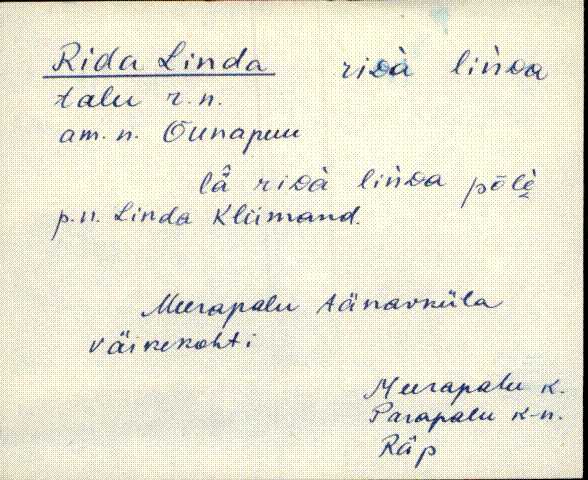 Rida Linda riᴅà liǹᴅa
talu r.n.
am.n. Õunapuu
lǟ̂ riᴅà liǹᴅa põlè
p.n. Linda Kliimand.
Meerapalu tänavküla
väikekohti
Meerapalu k.
Parapalu k-n.
Räp